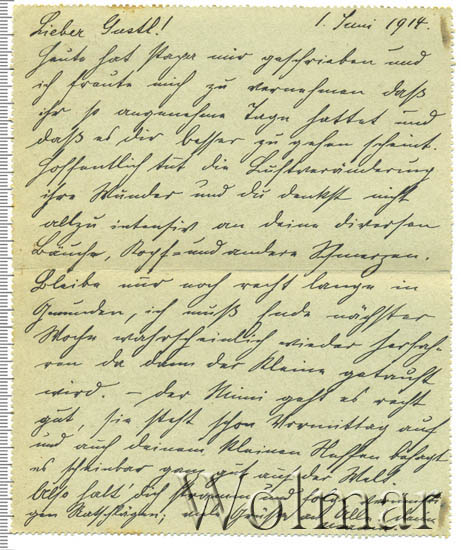 Lieber Gustl! 1. Juni 1914.
Heute hat Papa mir geschrieben und
ich freute mich zu vernehmen daß
ihr so angenehme Tage hattet und
daß es dir besser zu gehen scheint.
Hoffentlich tut die Luftveränderung
ihre Wunder und du denkst nicht
allzu intensiv an deine diversen
Bäuche, Kopf- und andere Schmerzen.
Bleibe nur noch recht lange in
Gmunden, ich muß Ende nächster
Woche wahrscheinlich wieder herfah-
ren da dann der Kleine getauft
wird. – Der Mimi geht es recht
gut, sie steht schon Vormittag auf
und auch deinem kleinen Neffen behagt
es scheinbar ganz gut auf der Welt
Also halt' dich stramm und
gen Ratschlägen; viele Grüße an alle
Wolmar